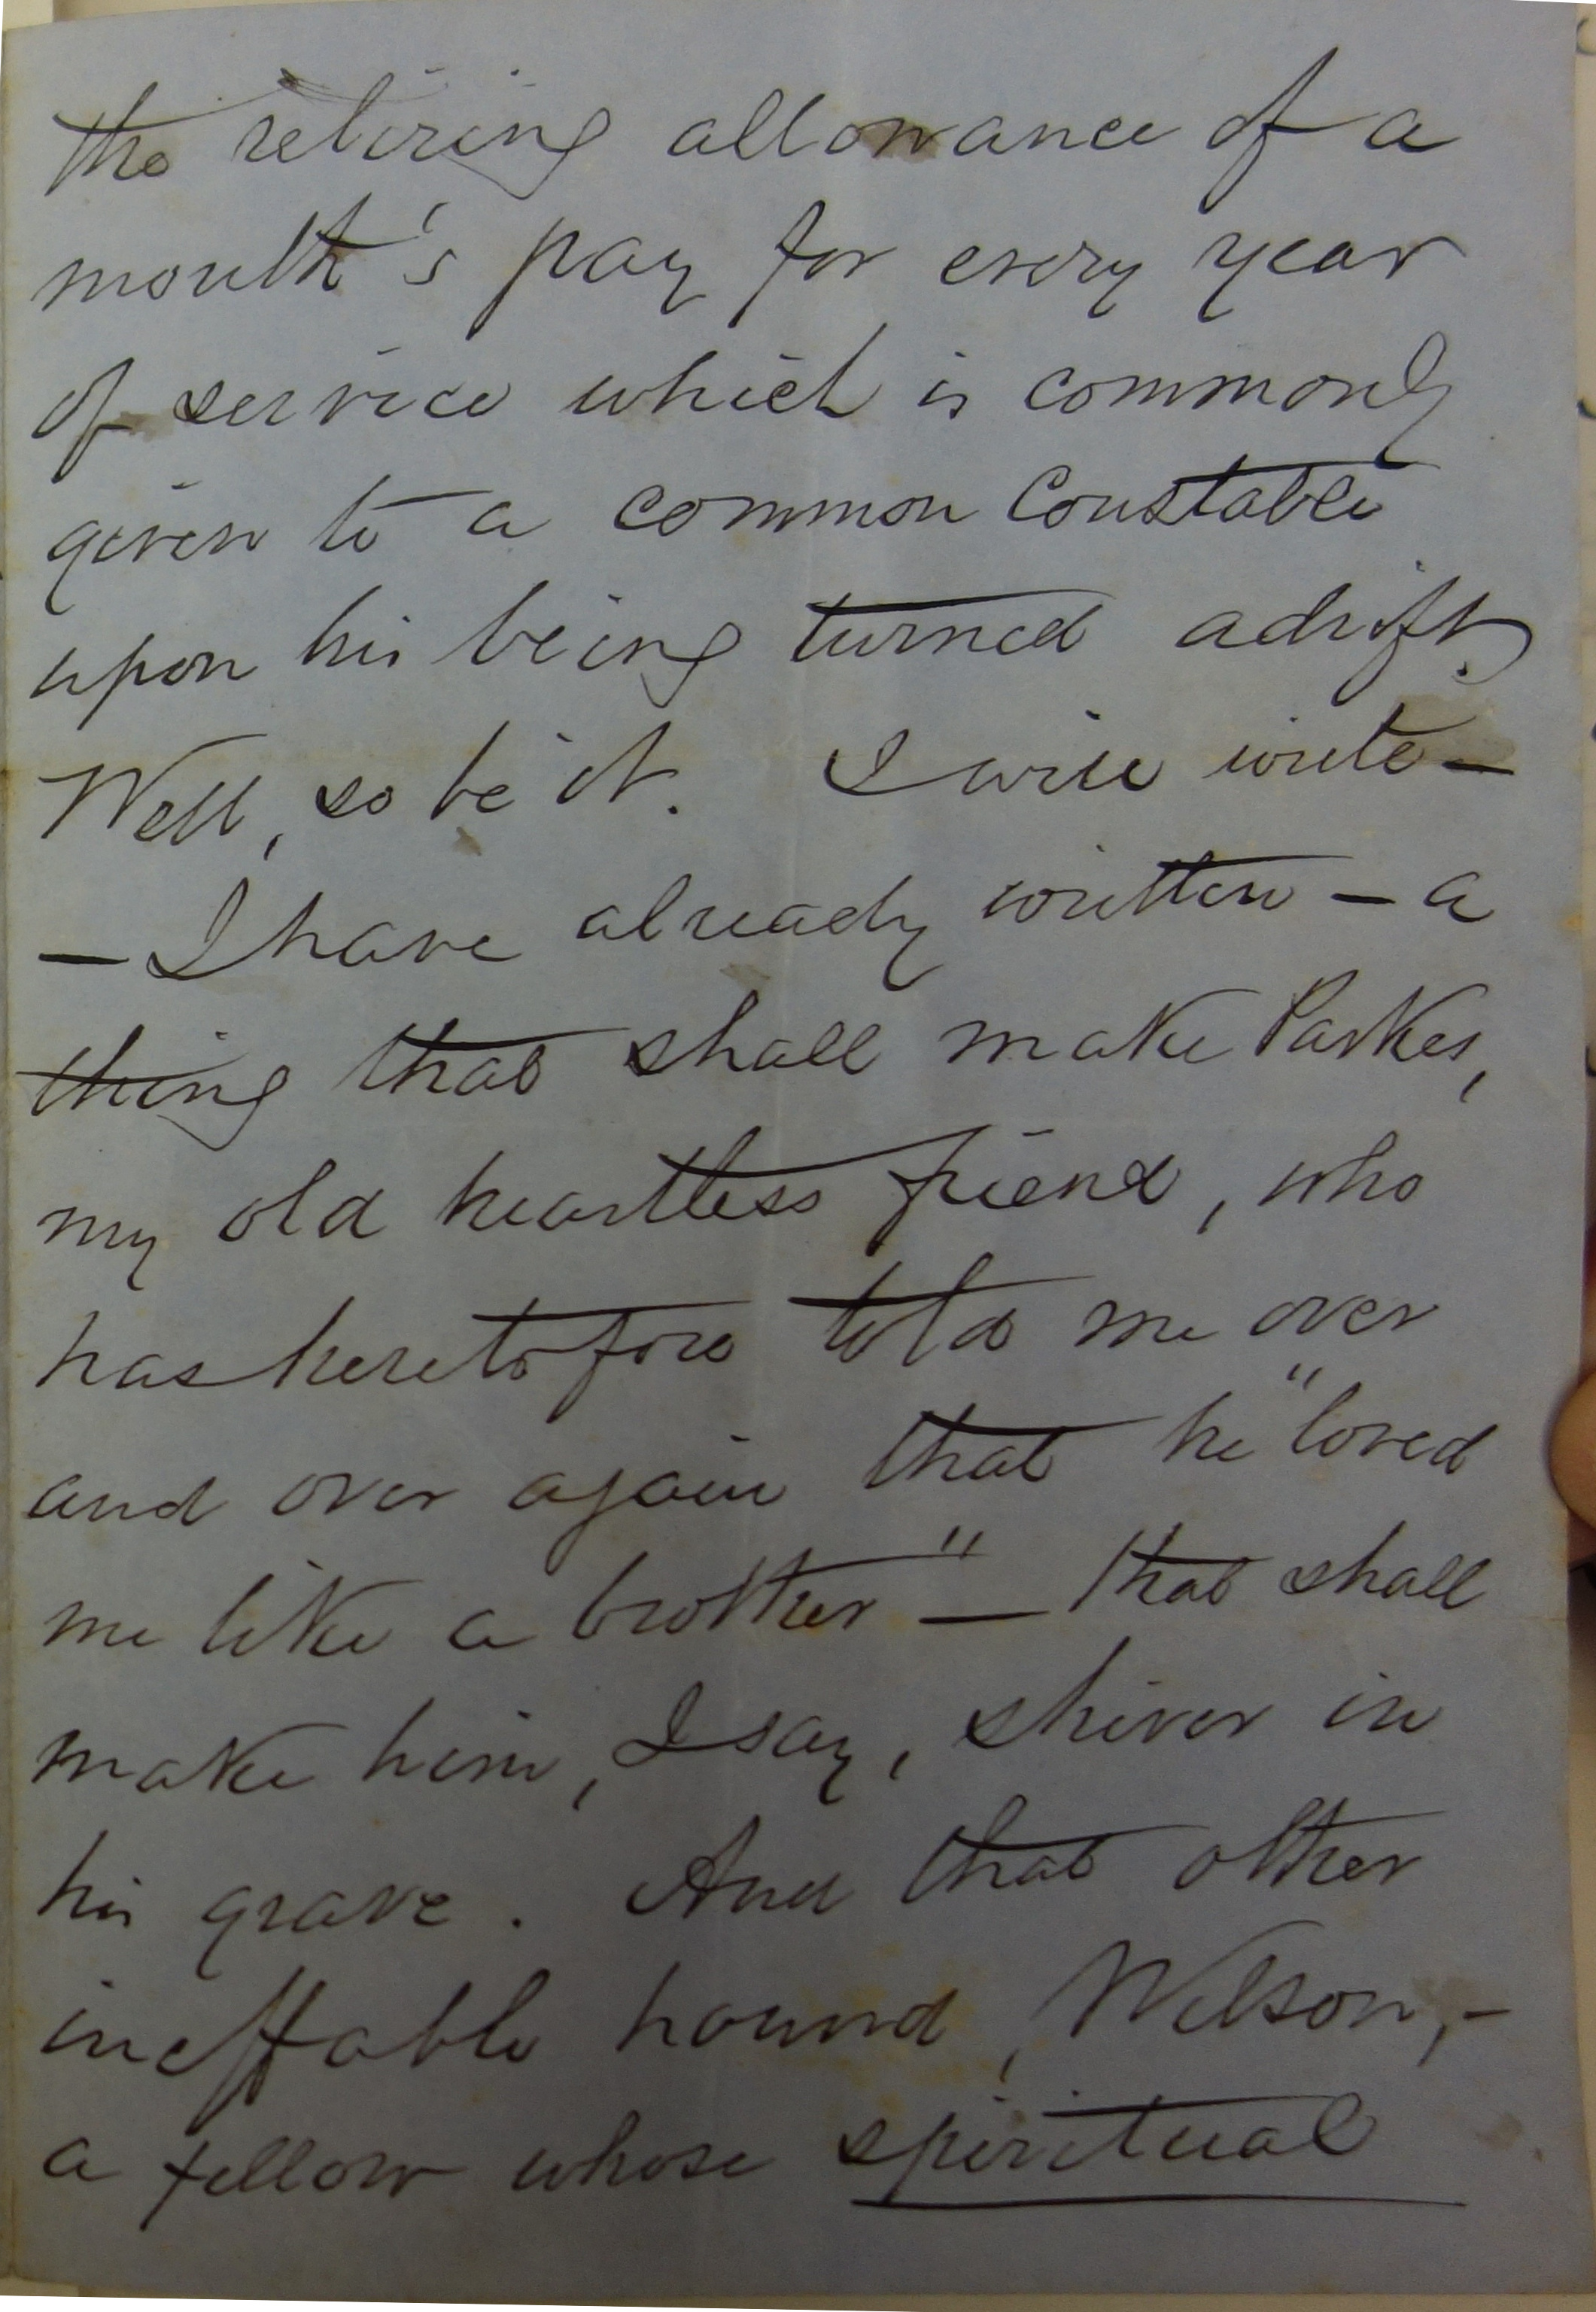 the retiring allowance of a
month's pay for every year
of service which is commonly
given to a common Constable
upon his being turned adrift.
Well, so be it. I will write —
— I have already written — a
thing that shall make Parkes,
my old heartless friend, who
has heretofore told me over
and over again that he "loved
me like a brother" — that shall
make him, I say, shiver in
his grave. And that other
ineffable hound, Wilson, -
a fellow whose spiritual